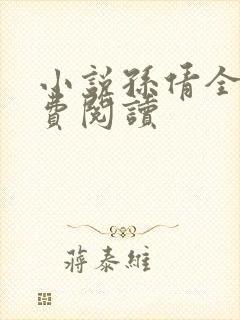 小說孫倩全
費閱讀
蔣泰維